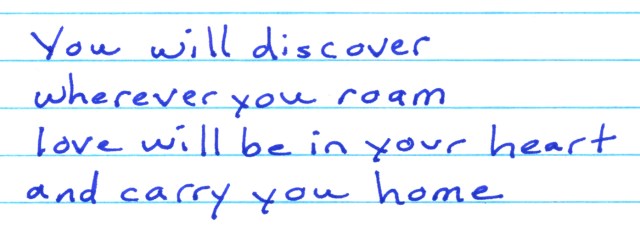 You will discover
wherever you roam
love will be in your heart
and carry you home